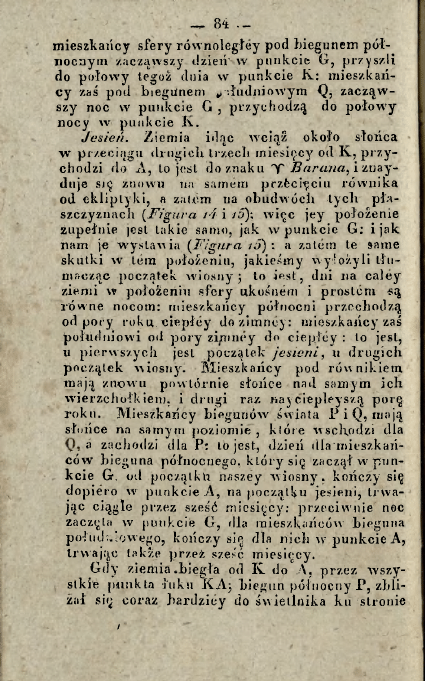 — 84 —
mieszkańcy sfery równoległéy pod biegunem pół-
nocnym zacząwszy dzień w punkcie G, przyszli
do połowy tegoż dnia w punkcie K: mieszkań-
cy zaś pod biegunem południowym Q, zacząw-
szy noc w punkcie G, przychodzą do połowy
nocy w punkcie K.
Jesień. Ziemia idąc wciąż około słońca
w przeciągu drugich trzech miesięcy od K, przy-
chodzi do A, to jest do znaku ♈ Barana, i znay-
duje się znowu na samém przecięciu równika
od ekliptyki, a zatém na obudwóch tych pła-
szczyznach (Figura 14 i 15); więc jey położenie
zupełnie jest takie samo, jak w punkcie G: i jak
nam je wystawia (Figura 15): a zatém te same
skutki w tém położeniu, jakieśmy wyłożyli tłu-
macząc początek wiosny; to jest, dni na całéy
ziemi w położeniu sfery ukośném i prostém są
równe nocom: mieszkańcy północni przechodzą
od pory roku ciepłéy do zimnéy: mieszkańcy zaś
południowi od pory zimnéy do ciepłéy: to jest,
u pierwszych jest początek jesieni, u drugich
początek wiosny. Mieszkańcy pod równikiem
mają znowu powtórnie słońce nad samym ich
wierzchołkiem, i drugi raz naycieplejszą porę
roku. Mieszkańcy biegunów świata P i Q, mają
słońce na samym poziomie, które wschodzi dla
Q, a zachodzi dla P: to jest, dzień dla mieszkań-
ców bieguna północnego, który się zaczął w pun-
kcie G, od początku naszey wiosny, kończy się
dopiéro w punkcie A, na początku jesieni, trwa-
jąc ciągle przez sześć miesięcy: przeciwnie noc
zaczęta w punkcie G, dla mieszkańców bieguna
południowego, kończy się dla nich w punkcie A,
trwając także przez sześć miesięcy.
Gdy ziemia biegła od K do A, przez wszy-
stkie punkta łuku KA; biegun północny P, zbli-
żał się coraz bardziéy do świetlnika ku stronie